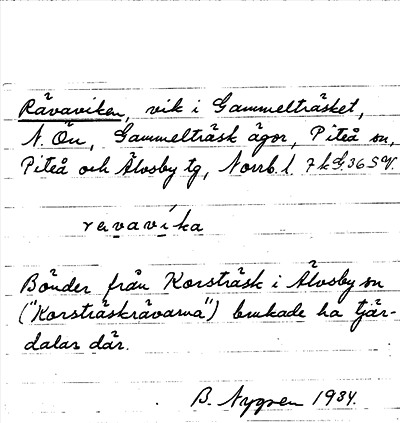 Rävaviken, vik i Gammelträsket,
N. Ön, Gammelträsk ägor, Piteå sn,
Piteå och Älvsby tg, Norrb. l. 7 k G. 36 SV.
ravavika
Bönder från Korsträsk i Älvsby sn
("Korsträskrävarna") brukade ha tjär-
dalar där.
B. Nygren 1934.